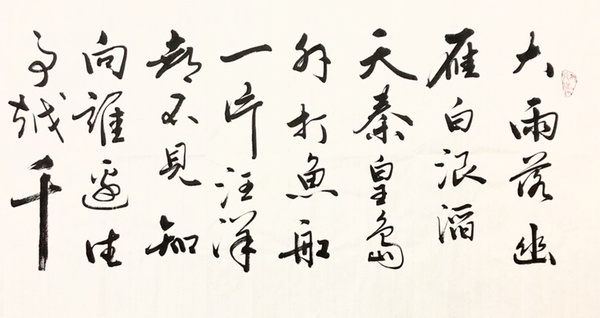 大雨落幽
雁白浪滔
天秦皇島
外打魚船
一片汪洋
都不見知
向誰邊往
事越千